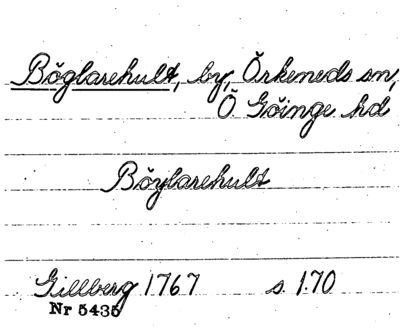 Böglarehult, by, Örkeneds sn,
Ö Göinge hd
Böylarehult
Gillberg 1767 s. 170
Nr 5435